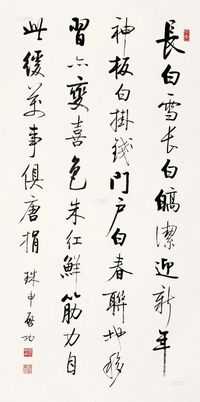 長白雪長白皜潔迎新年
神板白掛錢門户白春聯地移
習亦變喜色朱紅鮮筋力自
此緩萬事俱唐捐
珠申啓功